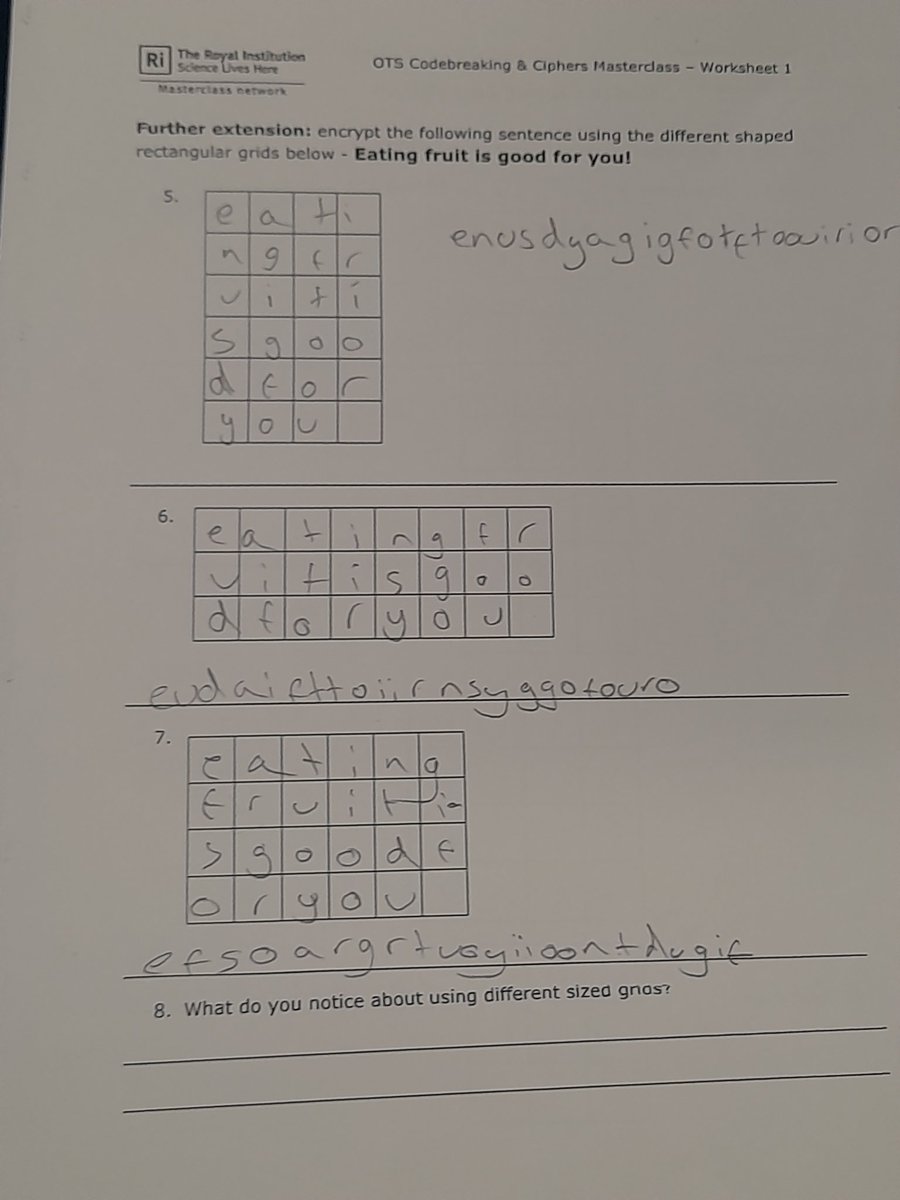 Ri The Royal Institution
Science Lives Here
Masterclass network
OTS Codebreaking & Ciphers Masterclass – Worksheet 1
Further extension: encrypt the following sentence using the different shaped
rectangular grids below - Eating fruit is good for you!
5.
e a t i
n g f r
u i t i
s g o o
d f o r
y o u
enusdyagigfotftoouirior
6.
e a t i n g f r
u i t i s g o o
d f o r y o u
eudaifttoiirnsyggofouro
7.
e a t i n g
f r u i t i
s g o o d f
o r y o u
efsoargrtuoyiioontdugif
8. What do you notice about using different sized grids?